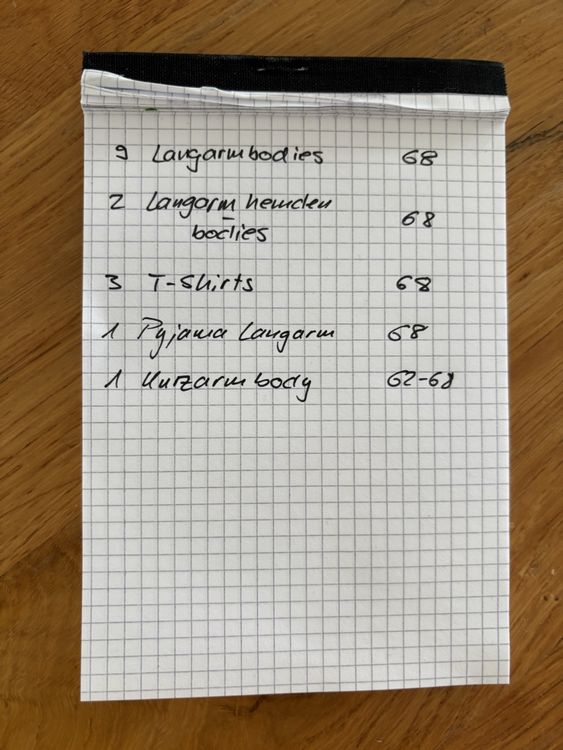 9 Langarmbodies 68
2 Langarm hemden
- 68
bodies
3 T-Shirts 68
1 Pyjama Langarm 68
1 Kurzarmbody 62-68